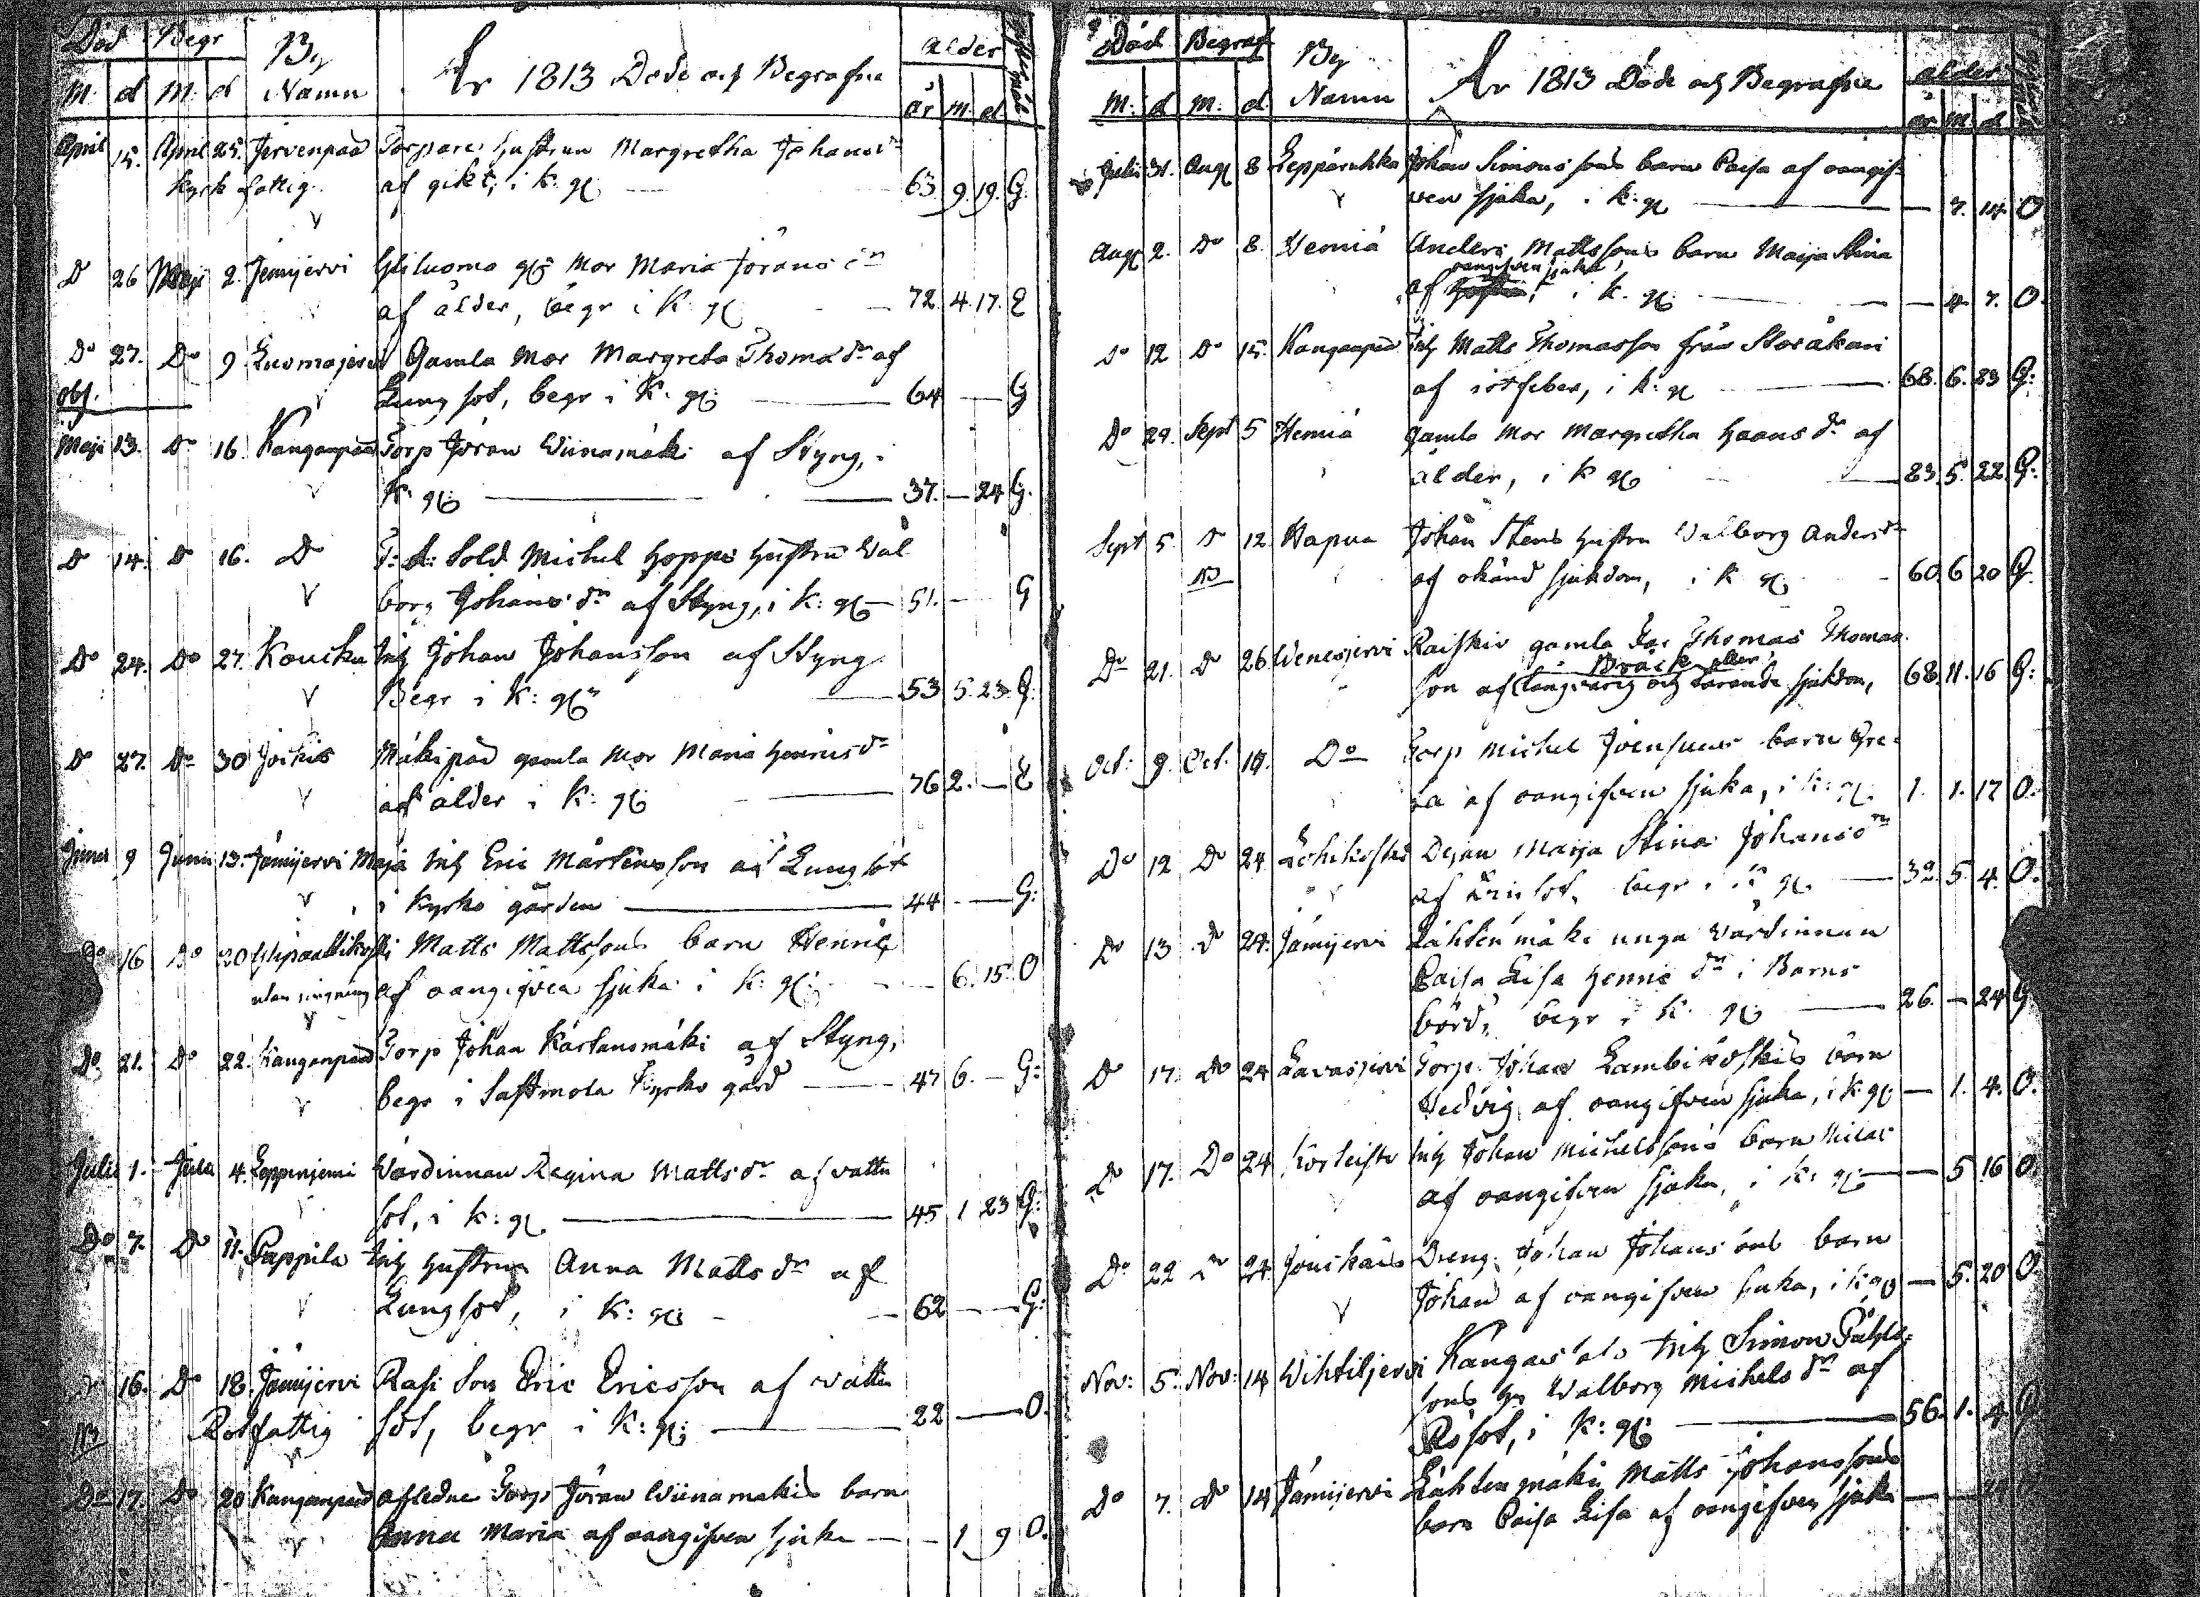 Död Begr By Namn År 1813 Döde och Begrafne alder
M: d M: d år m d
April 15. April 25. Jervenpää Torpare hustrun Margretha Johans dr
kyrk fattig. af gikt, i k: g 63 9 19. G.
Do 26 Maji 2. Jemijervi Yliluoma gl Mor Maria Jörans dr
af ålder, begr i K: g 72 4. 17. E
Do 27. Do 9 Luomajervi Gamla Mor Margreta Thoma dr af
obs. Lungsot, begr i K: g 64 — G
Maji 13. Do 16. Kanganpää Torp Jöran Wiinamäki af Styng, i
K: g 37. — 24 G.
Do 14. Do 16. Do Sold Michel Hopps hustru Wal
borg Johans dr af Styng, i K: g 51. — G
Do 24. Do 27. Koucku Inh Johan Johansson af Styng
Begr i K: g 53 5. 23. G:
Do 27. Do 30 Mäkipää gamla Mor Maria Henrics dr
af ålder i K: g 76 2. — E
Junii 9 Junii 13. Jämijervi Maja Inh Eric Mårtensson af Lungsot
i Kyrko gården 44 — G:
Do 16 Do 20 Matts Mattssons barn Henric
utan ringning af oangifven sjuka i K: g: 6. 15. O
Do 21. Do 22. Kanganpää Torp Johan Kårtansmäki af Styng,
begr i Sastmola Kyrko gård 47 6. — G:
Julii 1. Julii 4. Leppinjemi Wärdinnan Regina Matts dr af vattu
sot, i k: g 45 1 23 G:
Do 7. Do 11. Pappila Inh hustrun Anna Matts dr af
Lungsot, i K: g 62 — G:
Do 16. Do 18. Jämijervi Rasi Son Eric Ericsson af vattu
NB Rotfattig sot, begr i K: g: 22 — O.
Do 17. Do 20 Kanganpää afledne Torp Jöran Wiinamäkis barn
Anna Maria af oangifven sjuka — 1 9 O.
Död Begraf By Namn År 1813 Döde och Begrafne alder
M: d M: d. år M d
Julii 31. Aug 8 Leppäruhka Johan Simonssons barn Caisa af oangif
ven sjuka, i K: g — 7. 14. O
Aug 2. Do 8. Hemiä Anders Mattssons barn Maija Stina
oangifven sjuka
af i k. g — 4 7. O.
Do 12 Do 15. Kanganpää Inh Matts Thomasson från Storåkari
af rötfeber, i k: g 68. 6. 23 G:
Do 29. Sept 5 Hemiä gamla Mor Margretha Haans dr af
ålder, i k g 83. 5. 22. G:
Sept 5. Do 12 Hapua Johan Stens hustru Walborg Anders dr
NB af okänd sjukdom, i k g 60 6 20 G.
Do 21. Do 26 Wenesjervi Raiskio gamla Far Thomas Thomas
Bråck eller
son af långvarig och tärande sjukdom, 68. 11. 16 G:
Oct: 9. Oct. 10. Do Torp Michel Joensuus barn Gre
ta af oangifven sjuka, i K: g. 1. 1. 17 O.
Do 12 Do 24. Dejan Maija Stina Johans dr
af Lungsot, begr i K g. 32. 5 4. O.
Do 13 Do 24. Jämijervi Lähtenmäki unga Wärdinnan
Caisa Lisa Henric dr i Barns
börd, begr i K: g 26. — 24 G
Do 17. Do 24 Lavasjervi Torp. Johan Lambikoskis barn
Hedvig af oangifven sjuka, i k: g — 1. 4. O.
Do 17. Do 24 Korteisto Inh Johan Michelssons barn Michel
af oangifven sjuka, i k: g — 5 16 O
Do 22 Do 24. Jouskais Dreng. Johan Johanssons barn
Johan af oangifven sjuka, i k: g — 5. 20 O.
Nov: 5. Nov: 14 Wihtiljervi Kangas als Inh Simon Påhls
sons h. Walborg Michels dr af
Rösot, i K: g 56. 1. 4. G
Do 7. Do 14 Jämijervi Lähtenmäki Matts Johanssons
barn Caisa Lisa af oangifven sjuka —